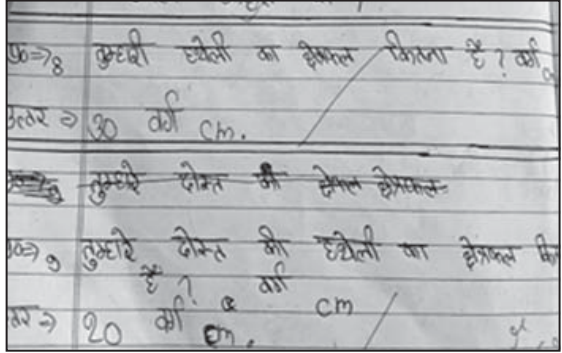 प्र०⇒8 तुम्हारी हथेली का क्षेत्रफल कितना है? वर्ग
उत्तर ⇒ 30 वर्ग cm.
तुम्हारे दोस्त की क्षेत्रफल
प्र०⇒9 तुम्हारे दोस्त की हथेली का क्षेत्रफल
है? वर्ग cm
त्तर ⇒ 20 वर्ग cm.